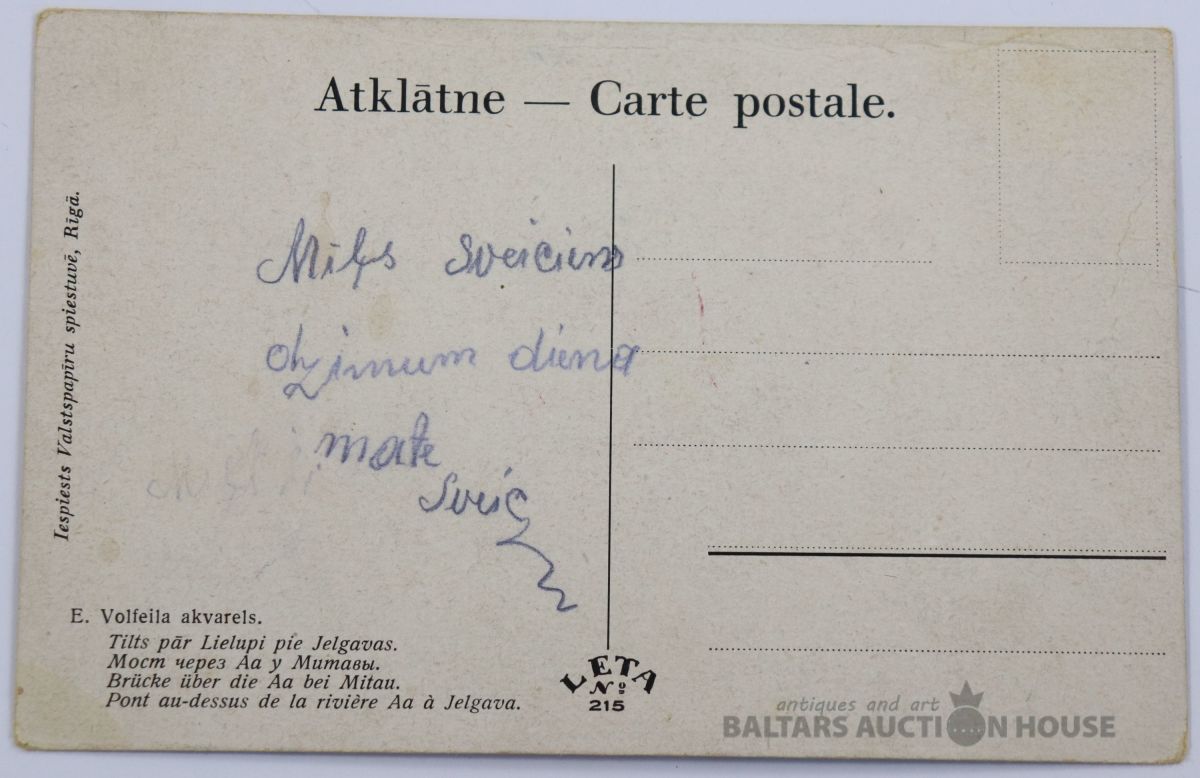 Atklātne — Carte postale.
Iespiests Valstspapīru spiestuvē, Rīgā.
Miļs sveiciens
dzimum dienā
mate
Sveic
E. Volfeila akvarels.
Tilts pār Lielupi pie Jelgavas.
Мост через Аа у Митавы.
Brücke über die Aa bei Mitau.
Pont au-dessus de la rivière Aa à Jelgava.
LETA
No
215
antiques and art
BALTARS AUCTION HOUSE